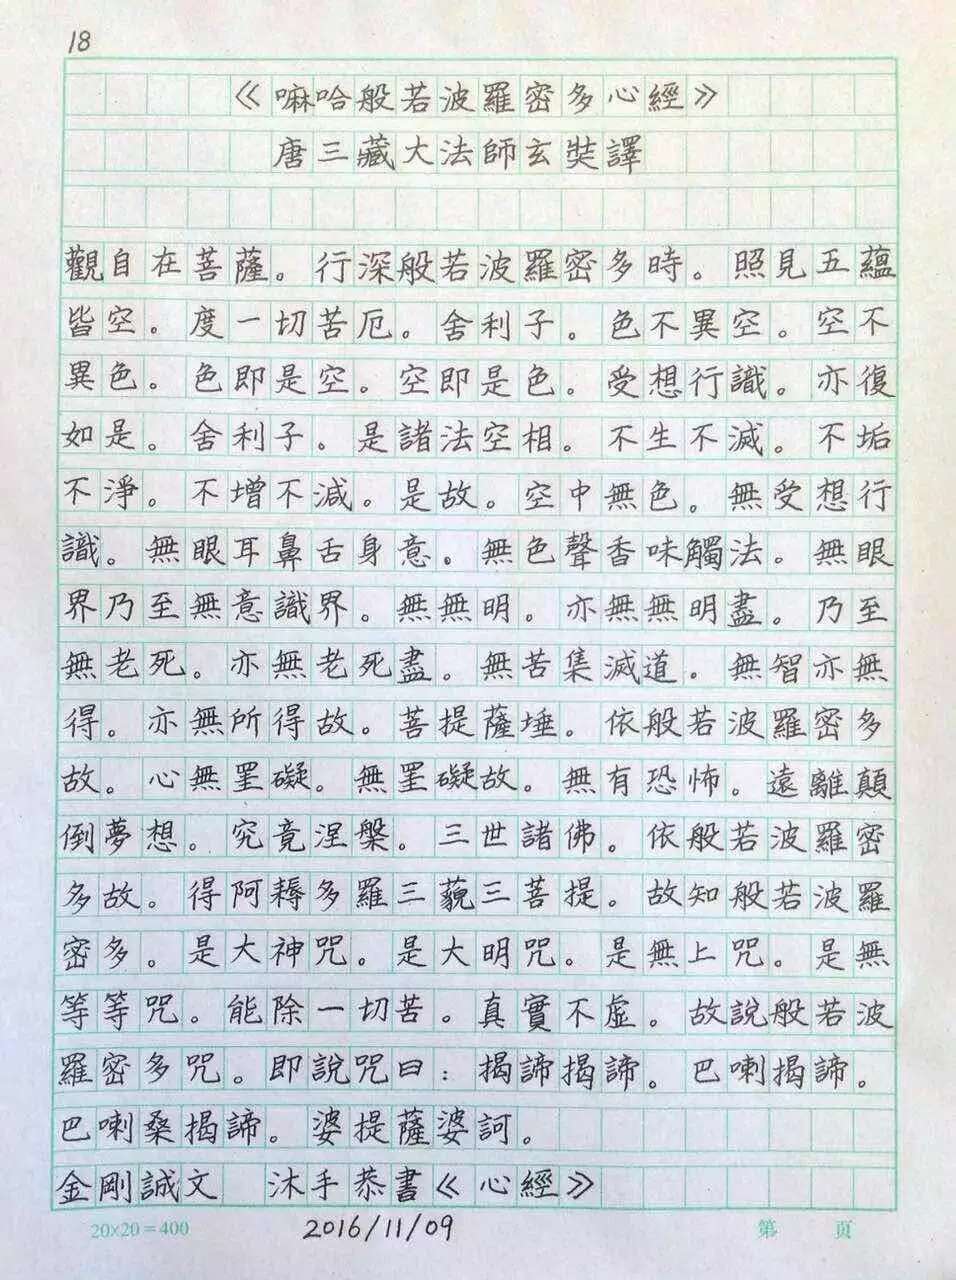 18
《嘛哈般若波羅密多心經》
唐三藏大法師玄奘譯
觀自在菩薩。行深般若波羅密多時。照見五蘊
皆空。度一切苦厄。舍利子。色不異空。空不
異色。色即是空。空即是色。受想行識。亦復
如是。舍利子。是諸法空相。不生不滅。不垢
不淨。不增不減。是故。空中無色。無受想行
識。無眼耳鼻舌身意。無色聲香味觸法。無眼
界乃至無意識界。無無明。亦無無明盡。乃至
無老死。亦無老死盡。無苦集滅道。無智亦無
得。亦無所得故。菩提薩埵。依般若波羅密多
故。心無罣礙。無罣礙故。無有恐怖。遠離顛
倒夢想。究竟涅槃。三世諸佛。依般若波羅密
多故。得阿耨多羅三藐三菩提。故知般若波羅
密多。是大神咒。是大明咒。是無上咒。是無
等等咒。能除一切苦。真實不虛。故說般若波
羅密多咒。即說咒曰：揭諦揭諦。巴喇揭諦。
巴喇桑揭諦。婆提薩婆訶。
金剛誠文 沐手恭書《心經》
20×20=400 2016/11/09 第 頁